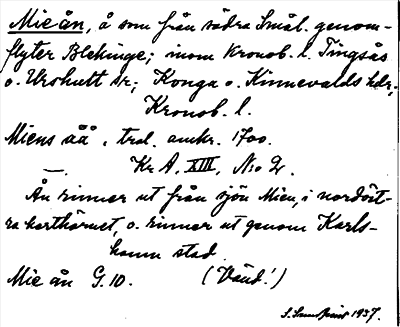 Mieån, å som från södra Smål. genom-
flyter Blekinge; inom Kronob. l. Tingsås
o. Urshult sr; Konga o. Kinnevalds hdr;
Kronob. l.
Miens åå, tral. omkr. 1700.
—. Kr A, XIII, N:o 2.
Ån rinner ut från sjön Mien, i nordöst-
ra karthörnet, o. rinner ut genom Karls-
hamn stad
Mie ån G. 10. (Vänd!)
1937.